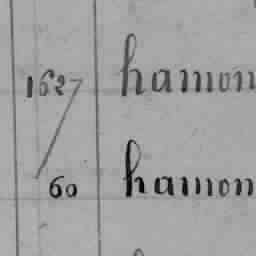 1627 hamon
60 hamon